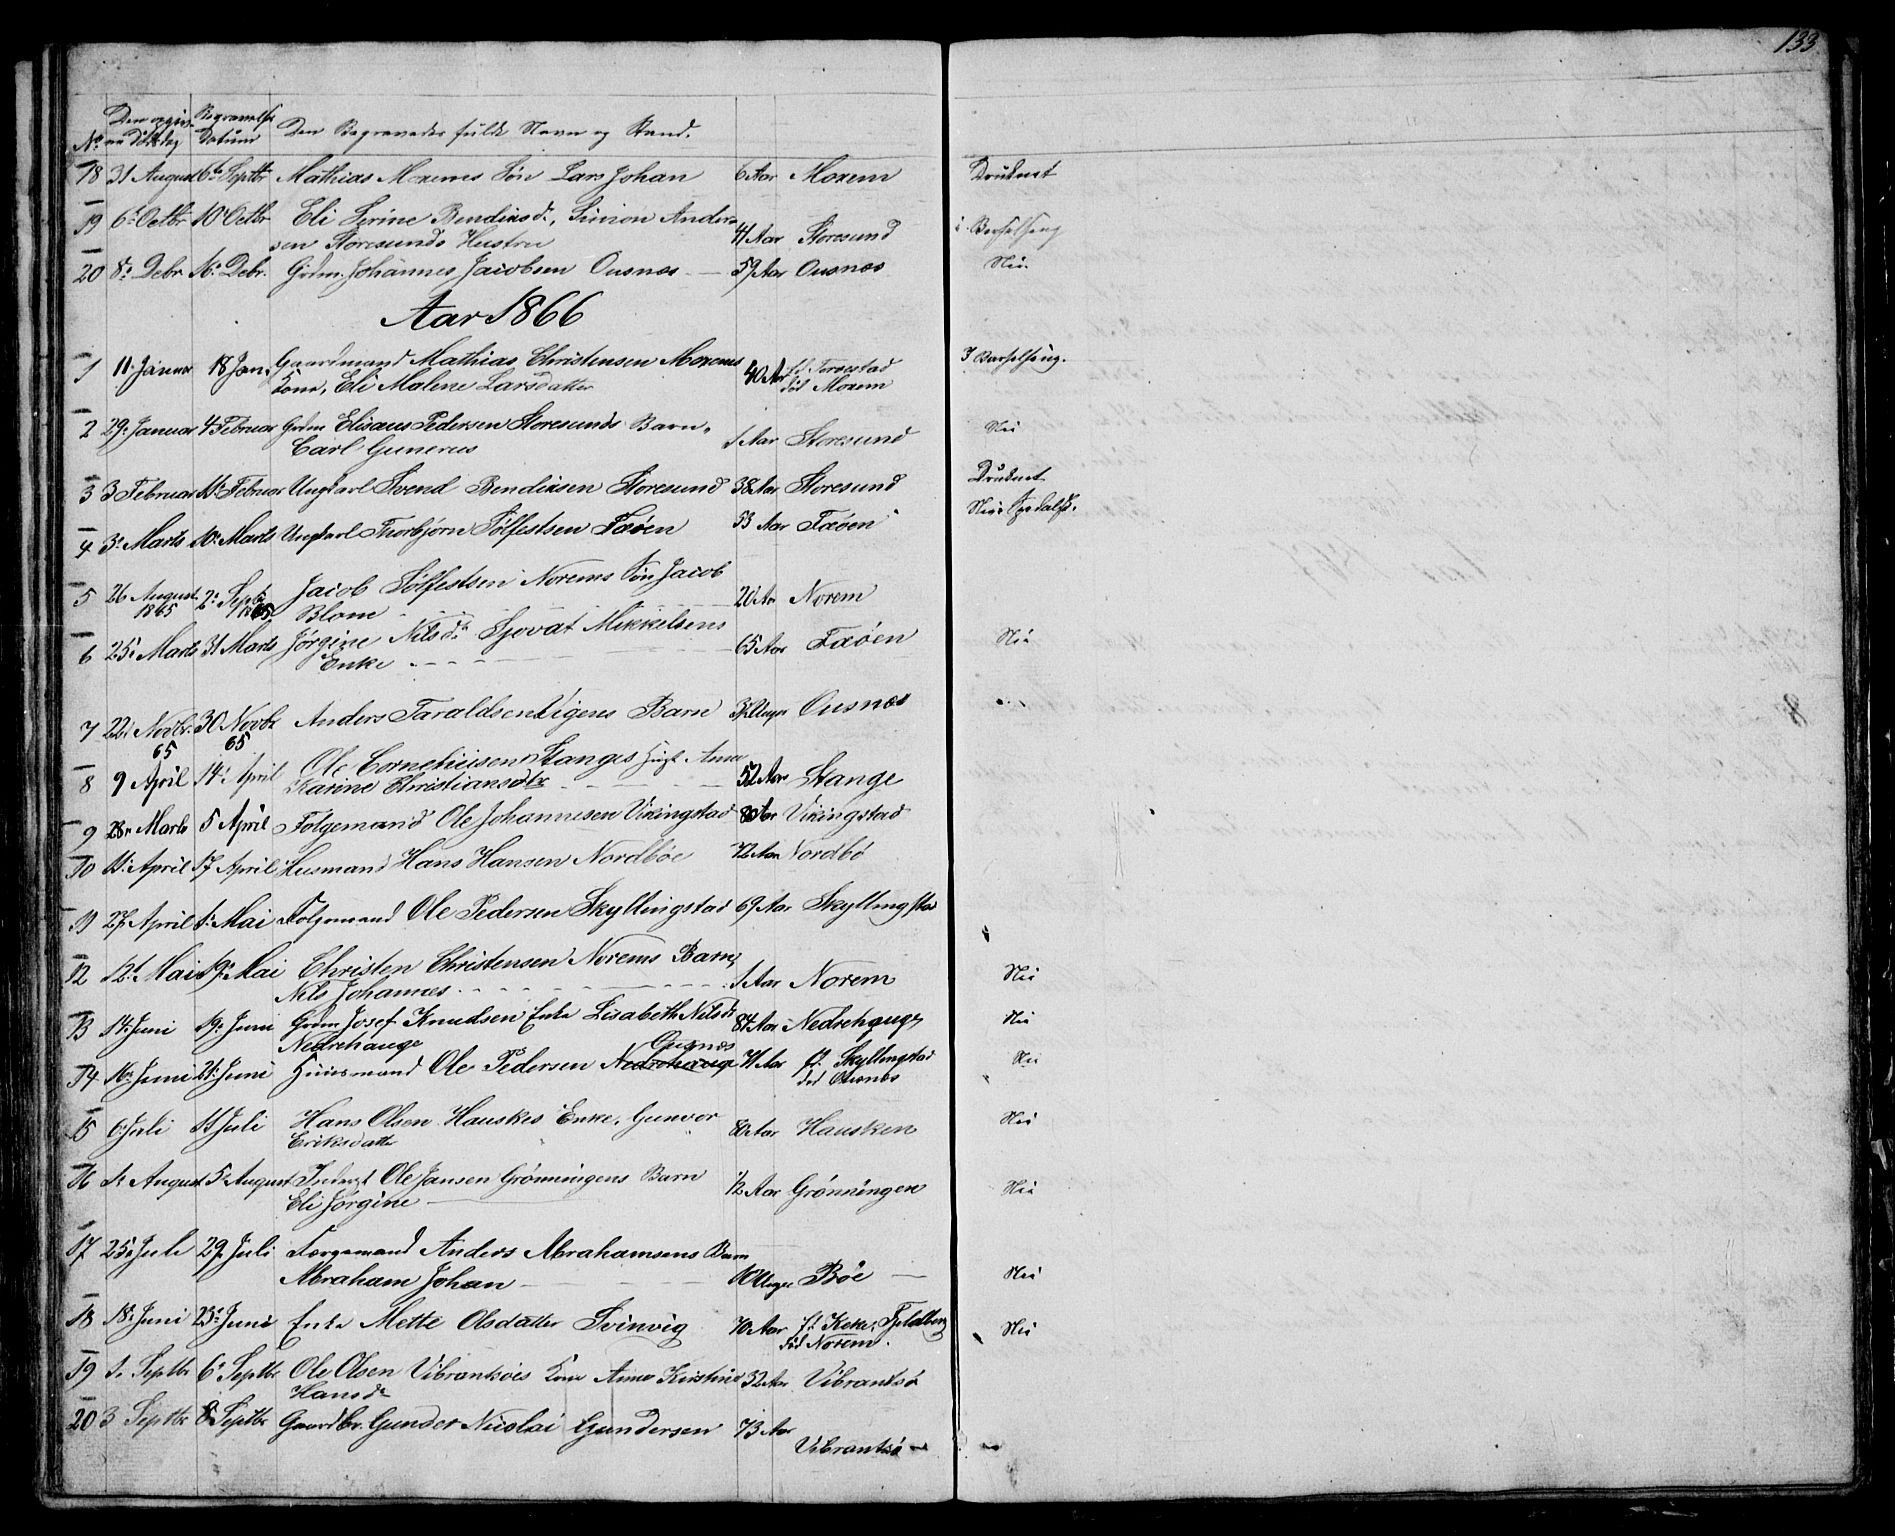 133
No Den opgivne Dödsdag Begravelses Datum Den Begravedes fulde Navn og Stand.
18 31 August 6te Septbr Mathias Morems Søn Lars Johan 6 Aar Morem Druknet
19 6te Octbr 10 Octbr Eli Serine Bendiksd., Simon Ander-
sen Storesunds Hustru 41 Aar Storesund i Barselseng
20 8de Debr. 16de Debr. Grdm. Johannes Jacobsen Ousnes 59 Aar Ousnes Nei
Aar 1866
1 11 Januar 18 Jan. Gaardmand Mathias Christensen Morems
Kone, Eli Malene Larsdatter 40 Aar f. Torvestad
död Morem I Barselseng.
2 29. Januar 4 Februar Grdm Elisæus Pedersen Storesunds Barn,
Carl Gunerus 1 Aar Storesund Nei
3 3 Februar 11 Februar Ungkarl Svend Bendiksen Storesund 38 Aar Storesund Druknet
4 3. Marts 10. Marts Ungkarl Thorbjørn Sølfestsen Fæøen 53 Aar Fæøen Nei Spedalsk.
5 26 August 1865 2. Septb 1865 Jacob Sølfestsen Norems Søn Jacob
Blom 20 Aar Norem
6 25. Marts 31 Marts Jørgine Nilsd. Sjovat Mikkelsens
Enke 65 Aar Fæøen Nei
7 22. Novbr. 65 30 Novbr 65 Anders Taraldsen Eigens Barn 3 Uger Ousnes
8 9 April 14. April Ole Corneliusen Stanges Anne
Karine Christiansdtr 52 Aar Stange
9 28. Marts 5 April Folgemand Ole Johannesen Vikingstad 80 Aar Vikingstad
10 11. April 17 April Husmand Hans Hansen Nordbøe 72 Aar Nordbö
11 27. April 1. Mai Folgemand Ole Pedersen Skyllingstad 69 Aar Skyllingstad
12 12t Mai 19. Mai Christen Christensen Norems Barn,
Nils Johannes 1 Aar Norem Nei
13 14. Juni 19. Juni Grdm Josef Knudsen Enke Lisabeth Nilsd.
Nedrehauge 84 Aar Nedrehauge Nei
Ousnes
14 16. Juni 21. Juni Huusmand Ole Pedersen Nedrehauge 71 Aar f. Skyllingstad
död Ousnes Nei
15 6. Juli 11 Juli Hans Olsen Hauskes Enke, Gunvor
Eriksdatter 80 Aar Hausken Nei
16 1. August 5. August Inderst Ole Jansen Grønningens Barn
Eli Jørgine 1/2 Aar Grønningen Nei
17 25. Juli 29. Juli Anders Abrahamsens Barn
Abraham Johan 10 Uger Böe Nei
18 18. Juni 23. Juni Enke Mette Olsdatter Svinvig 70 Aar Fjeldberg
död Norem. Nei
19 1. Septbr 6. Septbr Ole Olsen Vibrantsøes Kone Anne Kirstine
Hansd. 32 Aar Vibrantsö
20 3 Septbr 8 Septbr Gaardbr. Gunder Nicolai Gundersen 73 Aar
Vibrantsø